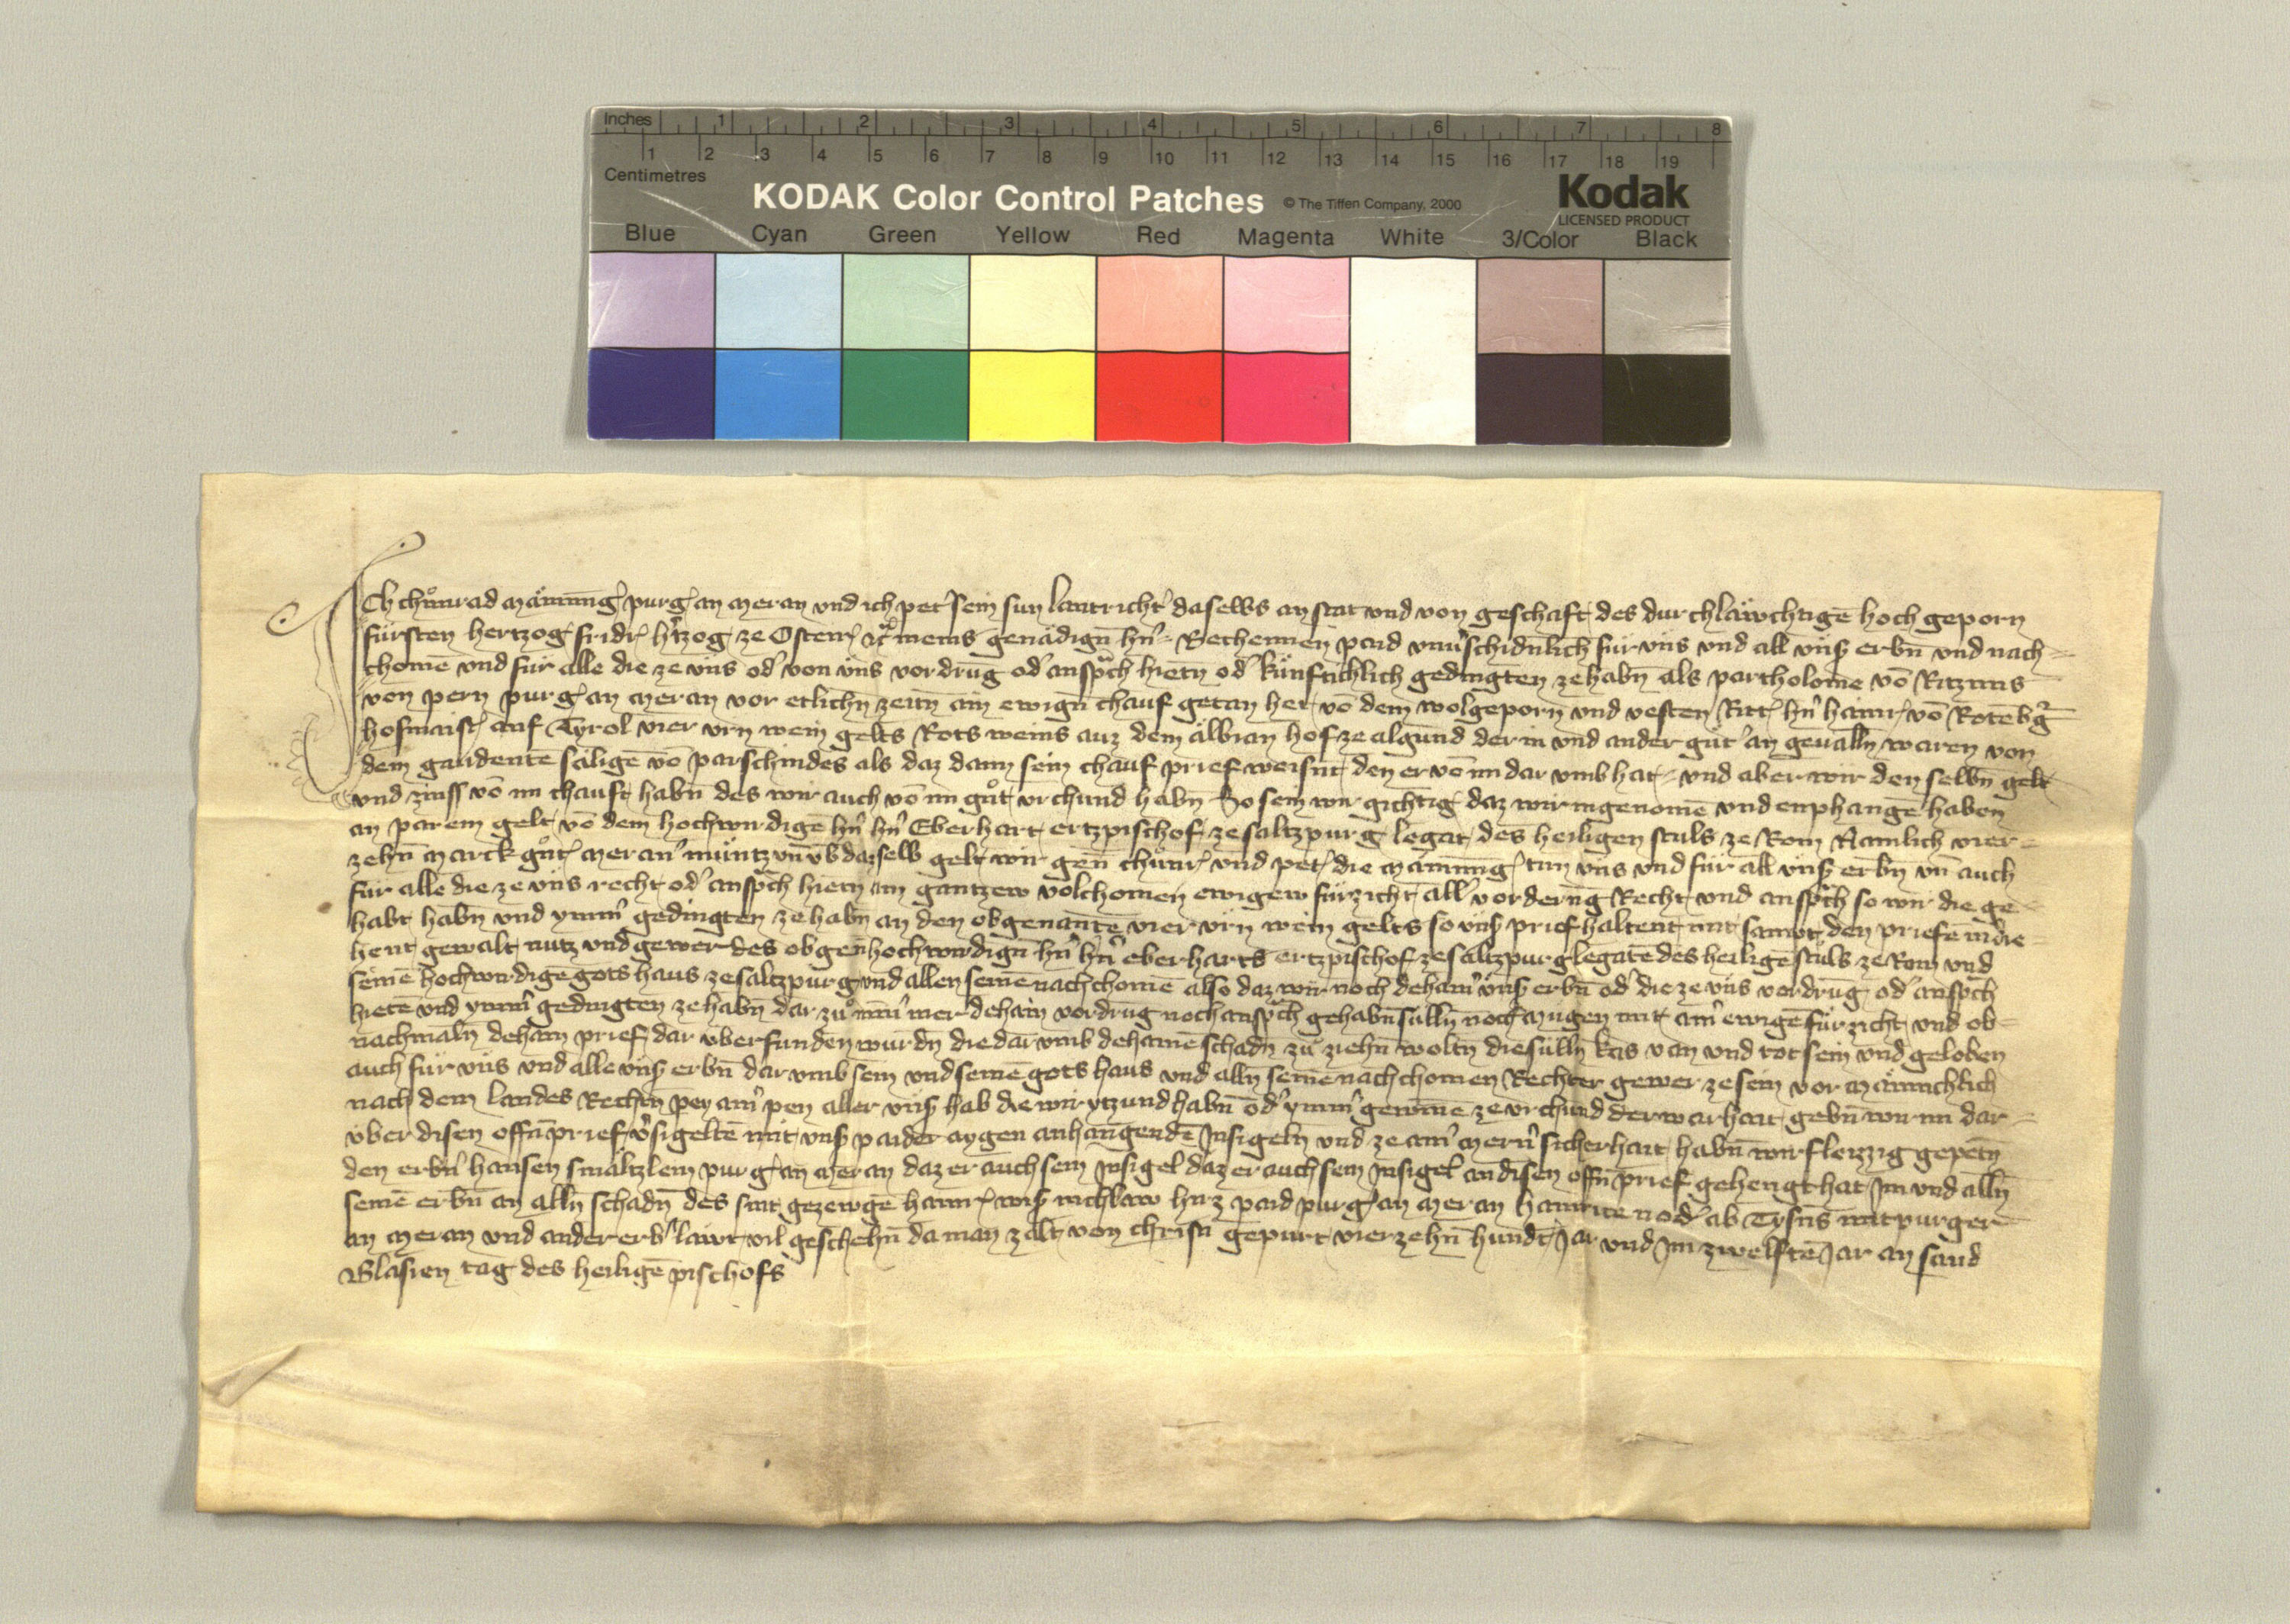 Inches 1 2 3 4 5 6 7 8
1 2 3 4 5 6 7 8 9 10 11 12 13 14 15 16 17 18 19
Centimetres
KODAK Color Control Patches © The Tiffen Company, 2000 Kodak
LICENSED PRODUCT
Blue Cyan Green Yellow Red Magenta White 3/Color Black
Ich chůnrad purg' an Meran vnd ich pet' sein sun lantricht' daselbs an stat vnd von geschaft des durchläwchtigē hoch geporn
fürsten hertzog fridr' h'tzog ze Ostenr' meins genädign̄ hn̄' Bechennen paid vnu'schidenlich für vns vnd all vns' erbn̄ vnd nach
chomē vnd für alle die ze vns od' von vns vordrūg od' anspch hietn̄ od' künftichlich gedingten ze habn̄ als partholome vō Ritzuns
von pern purg' an Meran vor etlichn̄ zeitn̄ ain ewign̄ chauf getan het vō dem wolgeporn̄ vnd vesten Ritt' hn̄' hainr' vō Rotēbg'
hofmaist' auf Tyrol vier vrn wein gelts Rots weins auz dem älbian hof ze algund der in vnd ander güt' an geualln̄ waren von
dem gaudentē säligē vō parschindes als daz dann sein chauf prief weisn̄t den er vō im dar vmb hat vnd aber wir den selbn̄ gelt
vnd zinss vō im chauft habn̄ des wir auch vō im gůt vrchund habn̄ So sein wir gichtig daz wir ingenomē vnd emphangē haben
an parem gelt vō dem hochwirdigē hn̄' hn̄' Eberhart ertzpischof ze saltzpurg legat des heiligen stuls ze Rom Namlich vier
zehn̄ Marck gůt' Meran' müntz vn̄ vb daz selb gelt wir gen̄ chůnr' vnd pet' die tun vns vnd für all vns' erbn̄ vn̄ auch
für alle die ze vns recht od' anspch hietn̄ ain gantzew volchomen ewigew fürzicht all' vorderūg Recht vnd anspch so wir die ge
habt habn̄ vnd ymm' gedingten ze habn̄ an den obgenantē vier vrn wein gelts so vns' prief haltent mit sampt den priefē in die
hent gewalt nutz vnd gewer des obgen̄ hochwirdign̄ hn̄' hn̄' eberharts ertzpischof ze saltzpurg legatē des heiligē stuls ze Rom vnd
seinē hochwirdigē gots haus ze saltzpurg vnd allen seinē nachchomē also daz wir noch dehain' vns' erbn̄ od' die ze vns vordrūg od' anspch
hietē vnd ymm' gedingten ze habn̄ dar zů nim̄' mer dehain vordrūg noch anspch gehabn̄ sülln̄ noch mügen mit ain' ewigē fürzicht vnd ob
nachmaln̄ dehain prief dar über funden wurdn̄ die dar vmb dehainē schadn̄ zů ziehn̄ woltn̄ die sülln̄ kas van vnd tot sein vnd geloben
auch für vns vnd alle vns' erbn̄ dar vmb sein vnd seinē gots haus vnd alln̄ seinē nachchomen Rechter gewer ze sein vor Männichlich
nach dem landes Rechtn̄ pey ain' pen aller vns' hab die wir ytzund habn̄ od' ymm' gewinnē ze vrchund der warhait gebn̄ wir im dar
über disen offn̄ prief v'sigeltē mit vns' paider aygen anhangendē Insigeln̄ vnd ze ain' merern' sicherhait habn̄ wir fleizzig gepetn̄
den erbn̄' hansen smältzlein purg' an Meran daz er auch sein Insigel daz er auch sein Insigel an disen offn̄ prief gehengt hat Im vnd alln̄
seinē erbn̄ an alln̄ schadn̄ des sint gezewgē hainr' niclaw paid purg' an Meran ab Tysens mitpurger
an Meran vnd ander erb' läwt vil geschehn̄ da man zalt von christi gepurt vierzehn̄ hundt' Jar vnd Im zwelftē Jar an sand
Blasien tag des heiligē pischofs